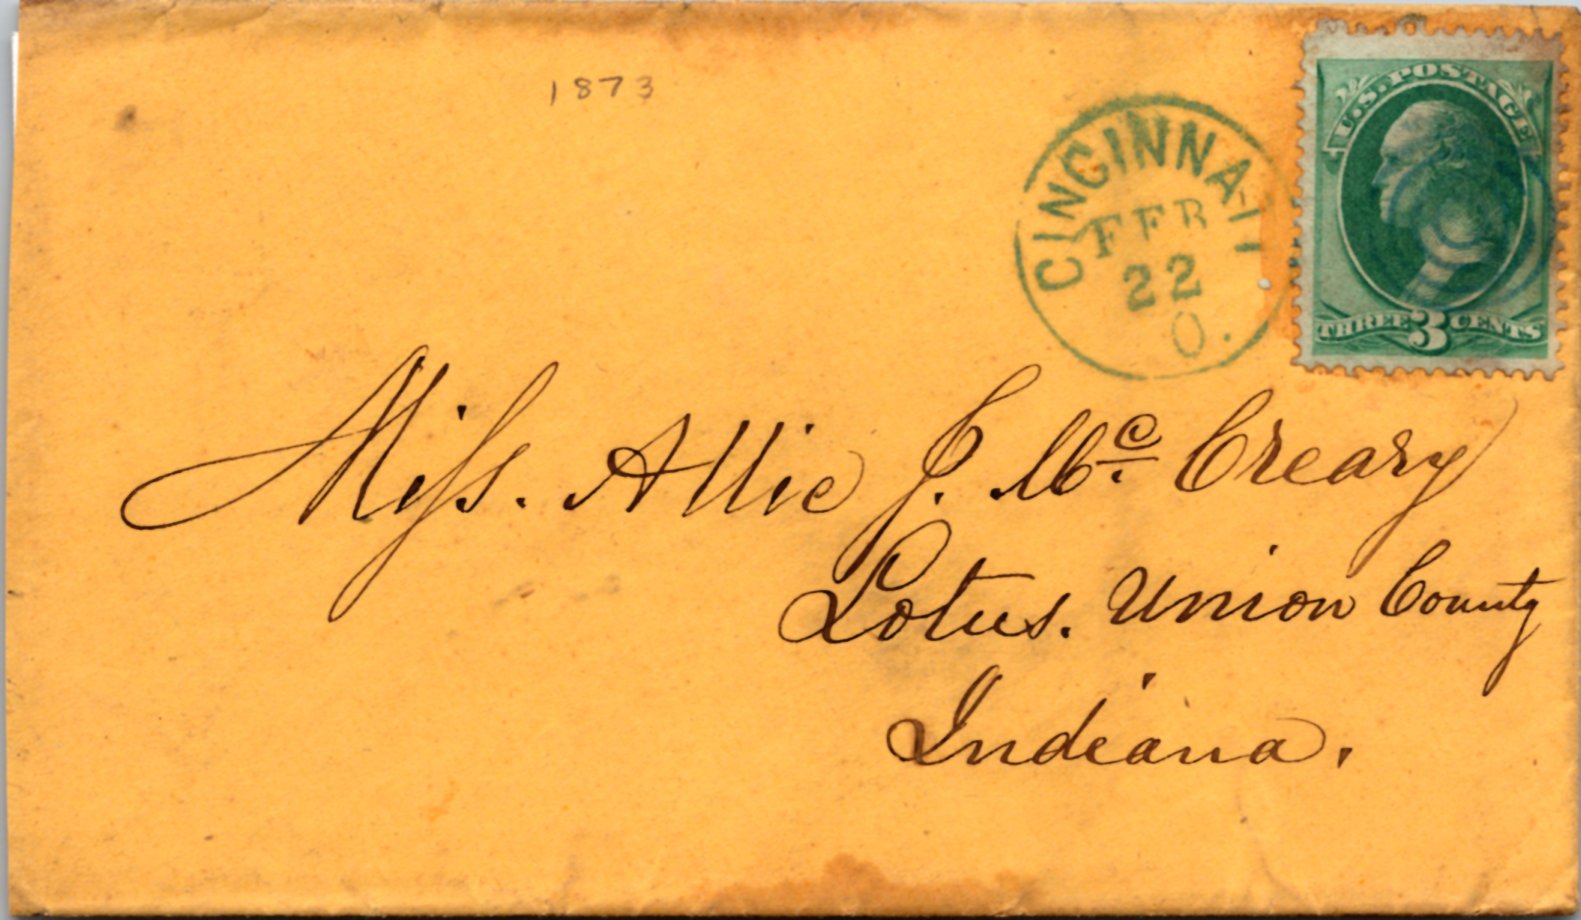 1873
CINCINNATI
FEB
22
O.
U.S. POSTAGE
THREE 3 CENTS
Miss. Allie J. Mc. Creary
Lotus. Union County
Indiana.